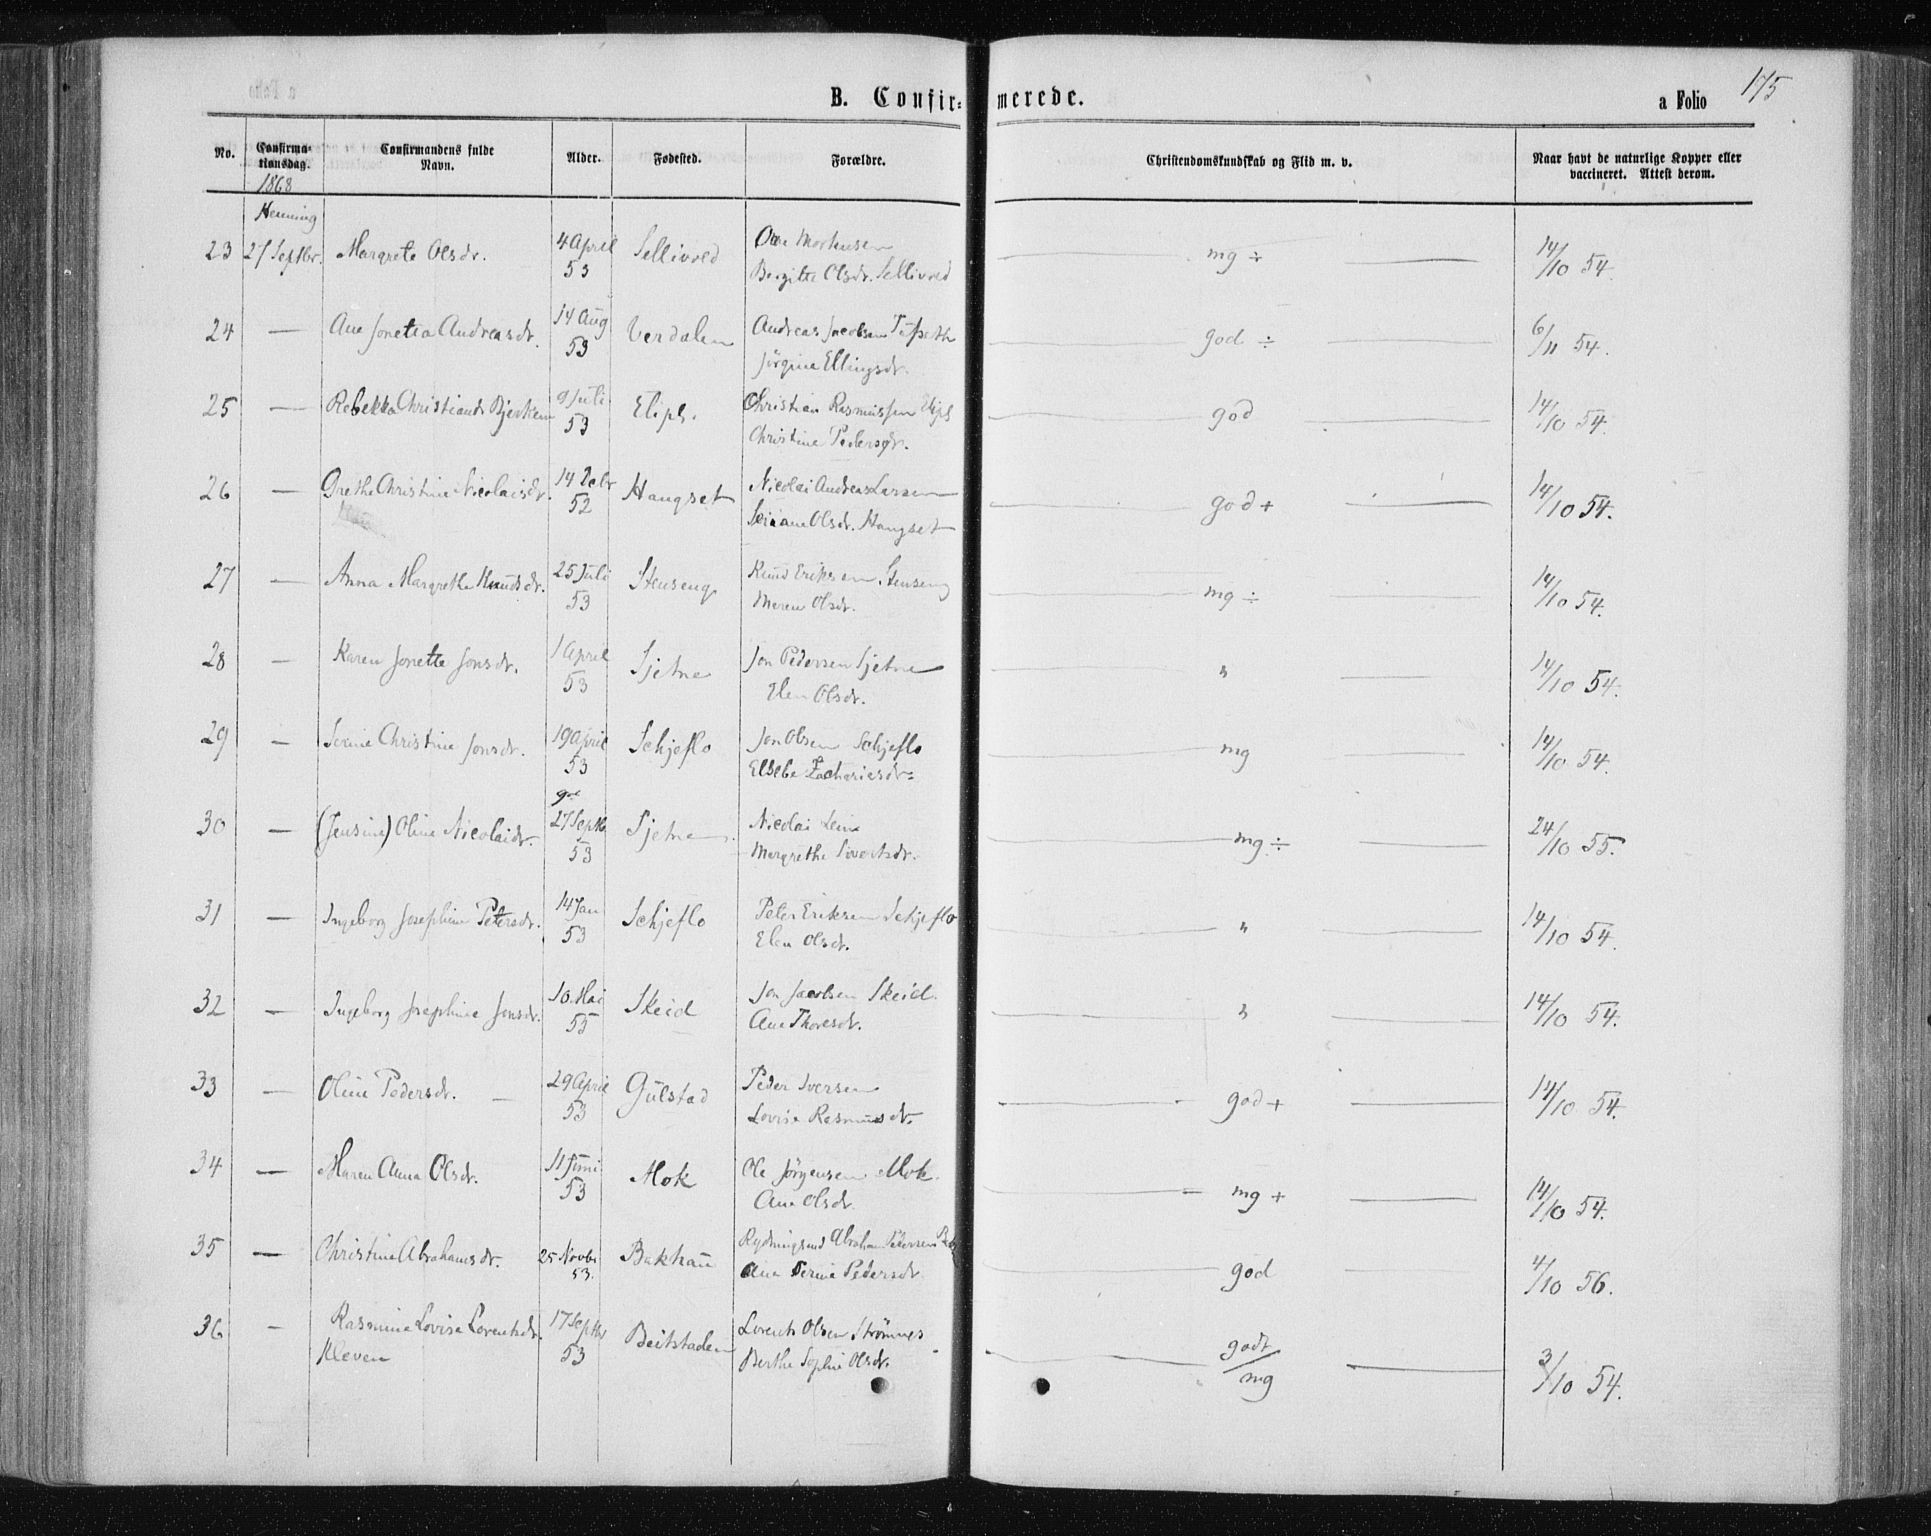 B. Confir=merede.
a Folio 175
No. Confirma=tionsdag. Confirmandens fulde Navn. Alder. Fødested. Forældre. Christendomskundskab og Flid m. v. Naar havt de naturlige Kopper eller vaccineret. Attest derom.
1868
Henning
23 27 Septbr. Margrete Olsdr. 4 April 53 Sellivold
Mortensen
Bergitte Olsdr. Sellivold mg ÷ 14/10 54.
24 — Ane Jonetta Andreasdr. 14 Aug 53 Verdalen
Andreas Jacobsen
Jörgine Ellingsdr. god ÷ 6/11 54.
25 — Rebekka Christiansdr Bjerkem 9 Juli 53
Christian Rasmussen
Christine Pedersdr. god 14/10 54.
26 — Grethe Christine Nicolaisdr. 14 52 Haugset
Nicolai Andreas Larsen
Olsdr. Haugset god + 14/10 54.
27 — Anna Margrethe Knudsdr. 25 Juli 53 Stenseng
Knud Eriksen Stenseng
Maren Olsdr. mg ÷ 14/10 54.
28 — Karen Jonette Jonsdr. 1 April 53 Sjetne
Jon Pedersen Sjetne
Elen Olsdr. " 14/10 54.
29 — Serine Christine Jonsdr. 19 April 53 Schjeflo
Jon Olsen Schjeflo
Elsebe Zachariesdr= mg 14/10 54.
30 — (Jensine) Oline Nicolaidr. 27 Septb 53 Sjetne
Nicolai Lein
Margrethe Sivertsdr. mg ÷ 24/10 55.
31 — Ingeborg Josephine Petersdr. 14 Jan 53 Schjeflo
Peter Eriksen Schjeflo
Elen Olsdr. " 14/10 54.
32 — Ingeborg Josephine Jonsdr. 10 Mai 53 Skeid
Jon Jacobsen Skeid.
Ane Thoresdr. " 14/10 54.
33 — Oline Pedersdr. — 29 April 53 Gulstad
Peder Iversen
Lovise Rasmusdr. god + 14/10 54.
34 — Maren Anna Olsdr. 11 Juni 53 Mok
Ole Jörgensen Mok.
Ane Olsdr. mg + 14/10 54.
35 — Christine Abrahamsdr. 25 Novbr 53. Bakhau
Abraham Petersen
Ane Serine Pedersdr. god 4/10 56.
36 — Rasmine Lovise Lorentsdr. 17 Septbr 53 Beitstaden
Kleven
Lorents Olsen Strömnes
Berthe Sophie Olsdr. godt/mg 3/10 54.